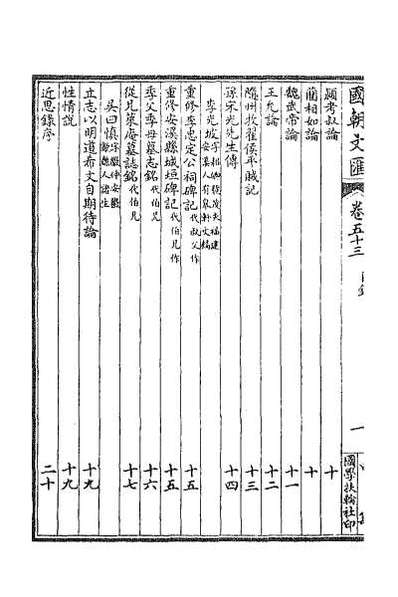 國朝文匯 卷五十三 目錄 一 國學扶輪社印
潁考叔論 十
藺相如論 十
魏武帝論 十一
王允論 十二
隨州牧翟侯平賊記 十三
孫宋光先生傳 十四
李光坡 字耜卿號茂夫福建安溪人有皋軒文編
重修李忠定公祠碑記 代叔父作 十五
重修安溪縣城垣碑記 代伯兄作 十五
季父季母墓志銘 代伯兄 十六
從兄葉庵墓誌銘 代伯兄 十七
吳曰慎 字徽仲安徽歙縣人諸生
立志以明道希文自期待論 十九
性情說 十九
近思錄序 二十